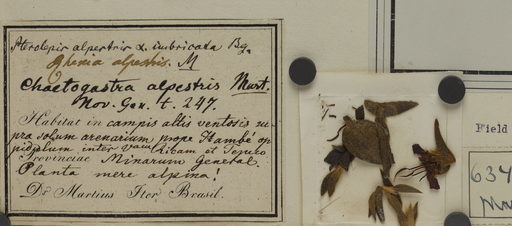 Pterolepis alpestris α. imbricata Bg.
Rhexia alpestris. M
Chaetogastra alpestris Mart.
Nov. Gen. t. 247.
Habitat in campis altis ventosis su-
pra solum arenarium prope Itambé op
pidulum inter Villam et Tejuco
Provinciae Minarum General.
Planta mere alpina!
Dr Martius Iter Brasil.
Field
634